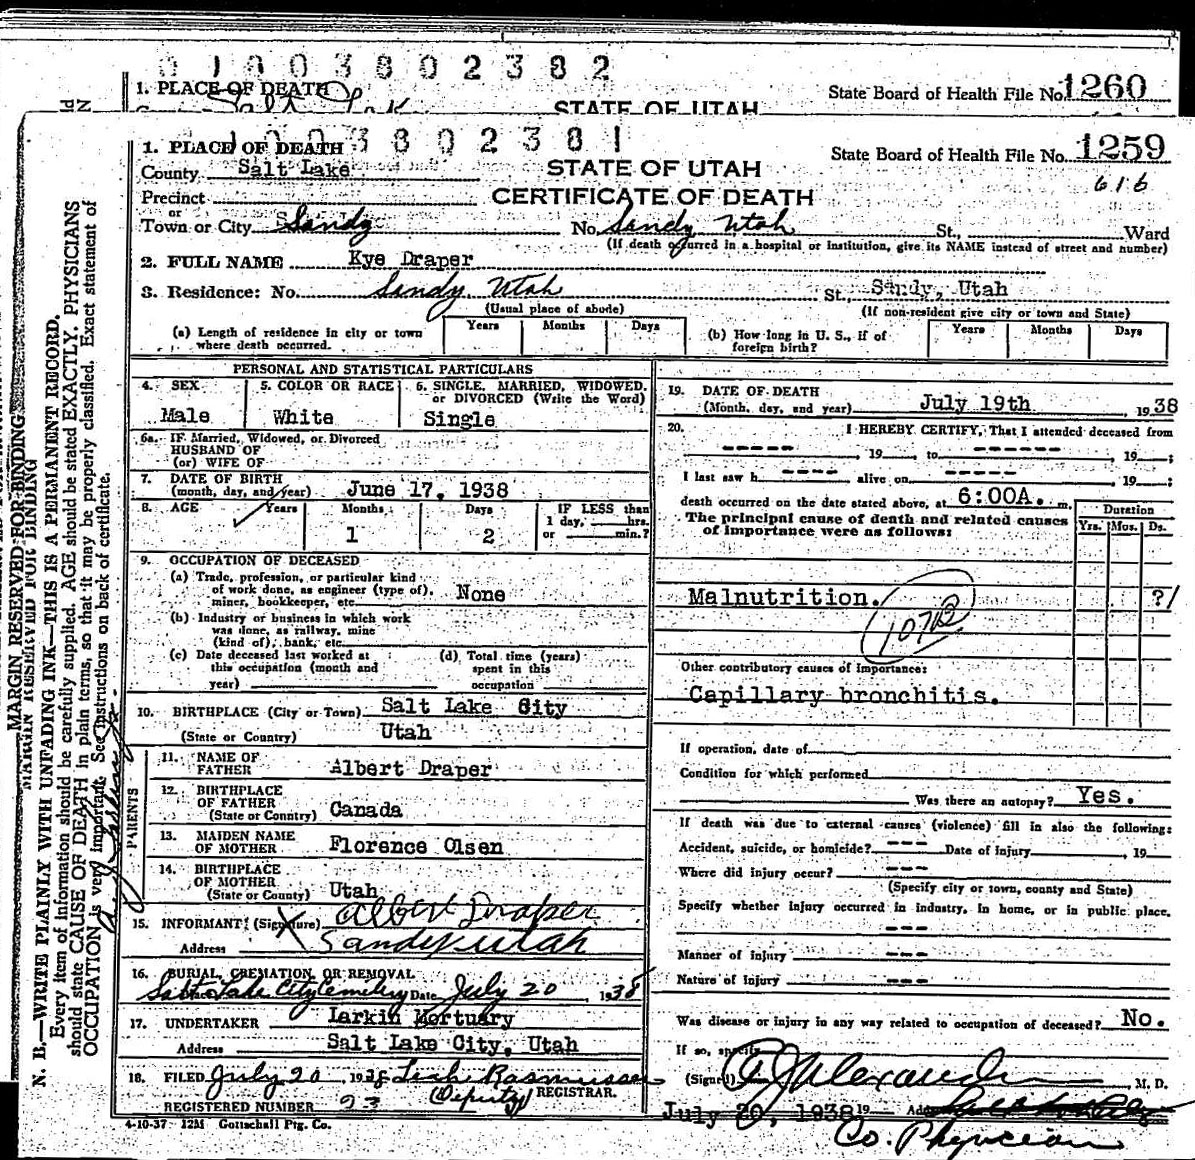 0 1 0 0 3 8 0 2 3 8 2
1. PLACE OF DEATH
Salt Lak
STATE OF UTAH
State Board of Health File No. 1260
0 3 8 0 2 3 8 1
1. PLACE OF DEATH
County Salt Lake
STATE OF UTAH
State Board of Health File No. 1259
616
Precinct
CERTIFICATE OF DEATH
or
Town or City Sandy No. Sandy Utah St., Ward
(If death occurred in a hospital or institution, give its NAME instead of street and number)
2. FULL NAME Kye Draper
3. Residence: No. Sandy, Utah St., Sandy, Utah
(Usual place of abode) (If non-resident give city or town and State)
(a) Length of residence in city or town where death occurred. Years Months Days
(b) How long in U. S., if of foreign birth? Years Months Days
PERSONAL AND STATISTICAL PARTICULARS
4. SEX
Male
5. COLOR OR RACE
White
6. SINGLE, MARRIED, WIDOWED, or DIVORCED (Write the Word)
Single
6a. IF Married, Widowed, or Divorced
HUSBAND OF
(or) WIFE OF
7. DATE OF BIRTH
(month, day, and year) June 17, 1938
8. AGE Years Months Days IF LESS than
1 day, hrs.
or min.?
1 2
9. OCCUPATION OF DECEASED
(a) Trade, profession, or particular kind
of work done, as engineer (type of),
miner, bookkeeper, etc. None
(b) Industry or business in which work
was done, as railway, mine
(kind of), bank, etc.
(c) Date deceased last worked at
this occupation (month and
year)
(d) Total time (years)
spent in this
occupation
10. BIRTHPLACE (City or Town) Salt Lake City
(State or Country) Utah
PARENTS
11. NAME OF
FATHER Albert Draper
12. BIRTHPLACE
OF FATHER
(State or Country) Canada
13. MAIDEN NAME
OF MOTHER Florence Olsen
14. BIRTHPLACE
OF MOTHER
(State or Country) Utah
15. INFORMANT: (Signature) X Albert Draper
Address Sandy Utah
16. BURIAL, CREMATION, OR REMOVAL
Salt Lake City Cemetery Date July 20, 1938
17. UNDERTAKER Larkin Mortuary
Address Salt Lake City, Utah
18. FILED July 20 1938 Leah Rasmussen
(Deputy) REGISTRAR.
REGISTERED NUMBER 23
4-10-37 12M Gottschall Ptg. Co.
19. DATE OF DEATH
(Month, day, and year) July 19th 1938
20. I HEREBY CERTIFY, That I attended deceased from
----- , 19 to ------ , 19 ;
I last saw h ---- alive on ----- , 19 ;
death occurred on the date stated above, at 6:00A. m.
The principal cause of death and related causes
of importance were as follows:
Duration
Yrs. Mos. Ds.
Malnutrition. ?/
107B
Other contributory causes of importance:
Capillary bronchitis.
If operation, date of
Condition for which performed
Was there an autopsy? Yes.
If death was due to external causes (violence) fill in also the following:
Accident, suicide, or homicide? --- Date of injury , 19
Where did injury occur? ---
(Specify city or town, county and State)
Specify whether injury occurred in industry, in home, or in public place.
---
Manner of injury ---
Nature of injury ---
Was disease or injury in any way related to occupation of deceased? No.
If so, specify
(Signed) Alexander M. D.
July 20, 1938 19 Address
Co. Physician
MARGIN RESERVED FOR BINDING
MARGIN RESERVED FOR BINDING
N. B.—WRITE PLAINLY WITH UNFADING INK—THIS IS A PERMANENT RECORD.
Every item of information should be carefully supplied. AGE should be stated EXACTLY. PHYSICIANS
should state CAUSE OF DEATH in plain terms, so that it may be properly classified. Exact statement of
OCCUPATION is very important. See instructions on back of certificate.